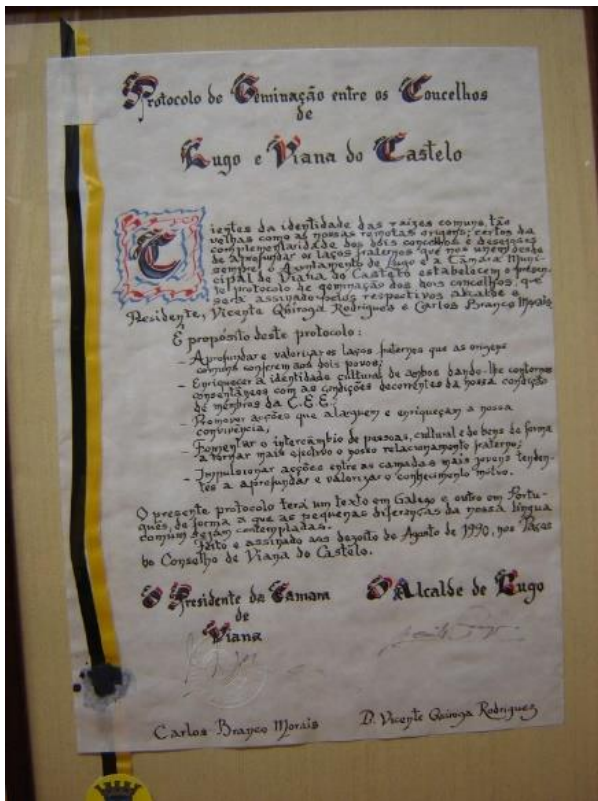 Protocolo de Geminação entre os Concelhos
de
Lugo e Viana do Castelo
Cientes da identidade das raizes comuns, tão
velhas como as nossas remotas origens; certos da
complementaridade dos dois concelhos e desejosos
de aprofundar os laços fraternos que nos unem desde
sempre; o Ayuntamento de Lugo e a Câmara Muni-
cipal de Viana do Castelo estabelecem o presen-
te protocolo de geminação dos dois concelhos, que
será assinado pelos respectivos alcalde e
Presidente, Vicente Quiroga Rodrigues e Carlos Branco Morais
É propósito deste protocolo:
- Aprofundar e valorizar os laços fraternos que as origens
comuns conferem aos dois povos;
- Enriquecer a identidade cultural de ambos dando-lhe contornos
consentâneos com as condições decorrentes da nossa condição
de membros da C.E.E.;
- Promover acções que alarguem e enriqueçam a nossa
convivência;
- Fomentar o intercâmbio de pessoas, cultural e de bens de forma
a tornar mais efectivo o nosso relacionamento fraterno;
- Impulsionar acções entre as camadas mais jovens tenden-
tes a aprofundar e valorizar o conhecimento mútuo.
O presente protocolo terá um texto em Galego e outro em Portu-
guês, de forma a que as pequenas diferenças da nossa língua
comum sejam contempladas.
Feito e assinado aos dezoito de Agosto de 1990, nos Paços
do Conselho de Viana do Castelo.
O Presidente da Camara
de
Viana
O Alcalde de Lugo
Carlos Branco Morais
D. Vicente Quiroga Rodriguez